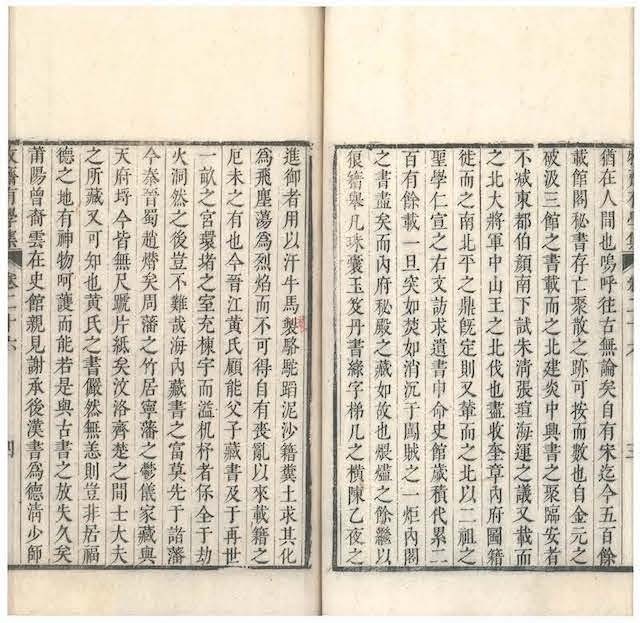 猶在人間也嗚呼往古無論矣自有宋迄今五百餘
載館閣秘書存亡聚散之跡可按而數也自金元之
破汲三館之書載而之北建炎中興書之聚臨安者
不减東都伯顏南下試朱淸張瑄海運之議又載而
之北大將軍中山王之北伐也盡收奎章內府圖籍
徙而之南北平之鼎旣定則又輦而之北以二祖之
聖學仁宣之右文訪求遺書申命史館歲積代累二
百有餘載一旦突如焚如消沉于闖賊之一炬內閣
之書盡矣而內府秘殿之藏如故也煨燼之餘繼以
狼籍舉凡珠囊玉笈丹書綠字梯几之橫陳乙夜之
進御者用以汗牛馬製駱駝蹈泥沙籍糞土求其化
爲飛塵蕩爲烈焰而不可得自有喪亂以來載籍之
厄未之有也今晉江黃氏顧能父子藏書及于再世
一畝之宮環堵之室充棟宇而溢机杼者保全于劫
火洞然之後豈不難哉海內藏書之富莫先于諸藩
今秦晉蜀趙熸矣周藩之竹居寧藩之鬱儀家藏與
天府埒今皆無尺蹏片紙矣汶洛齊楚之間士大夫
之所藏又可知也黃氏之書儼然無恙則豈非居福
德之地有神物呵護而能若是與古書之放失久矣
莆陽曾裔雲在史館親見謝承後漢書爲德淸少師
牧齋有學集 卷二十六 四